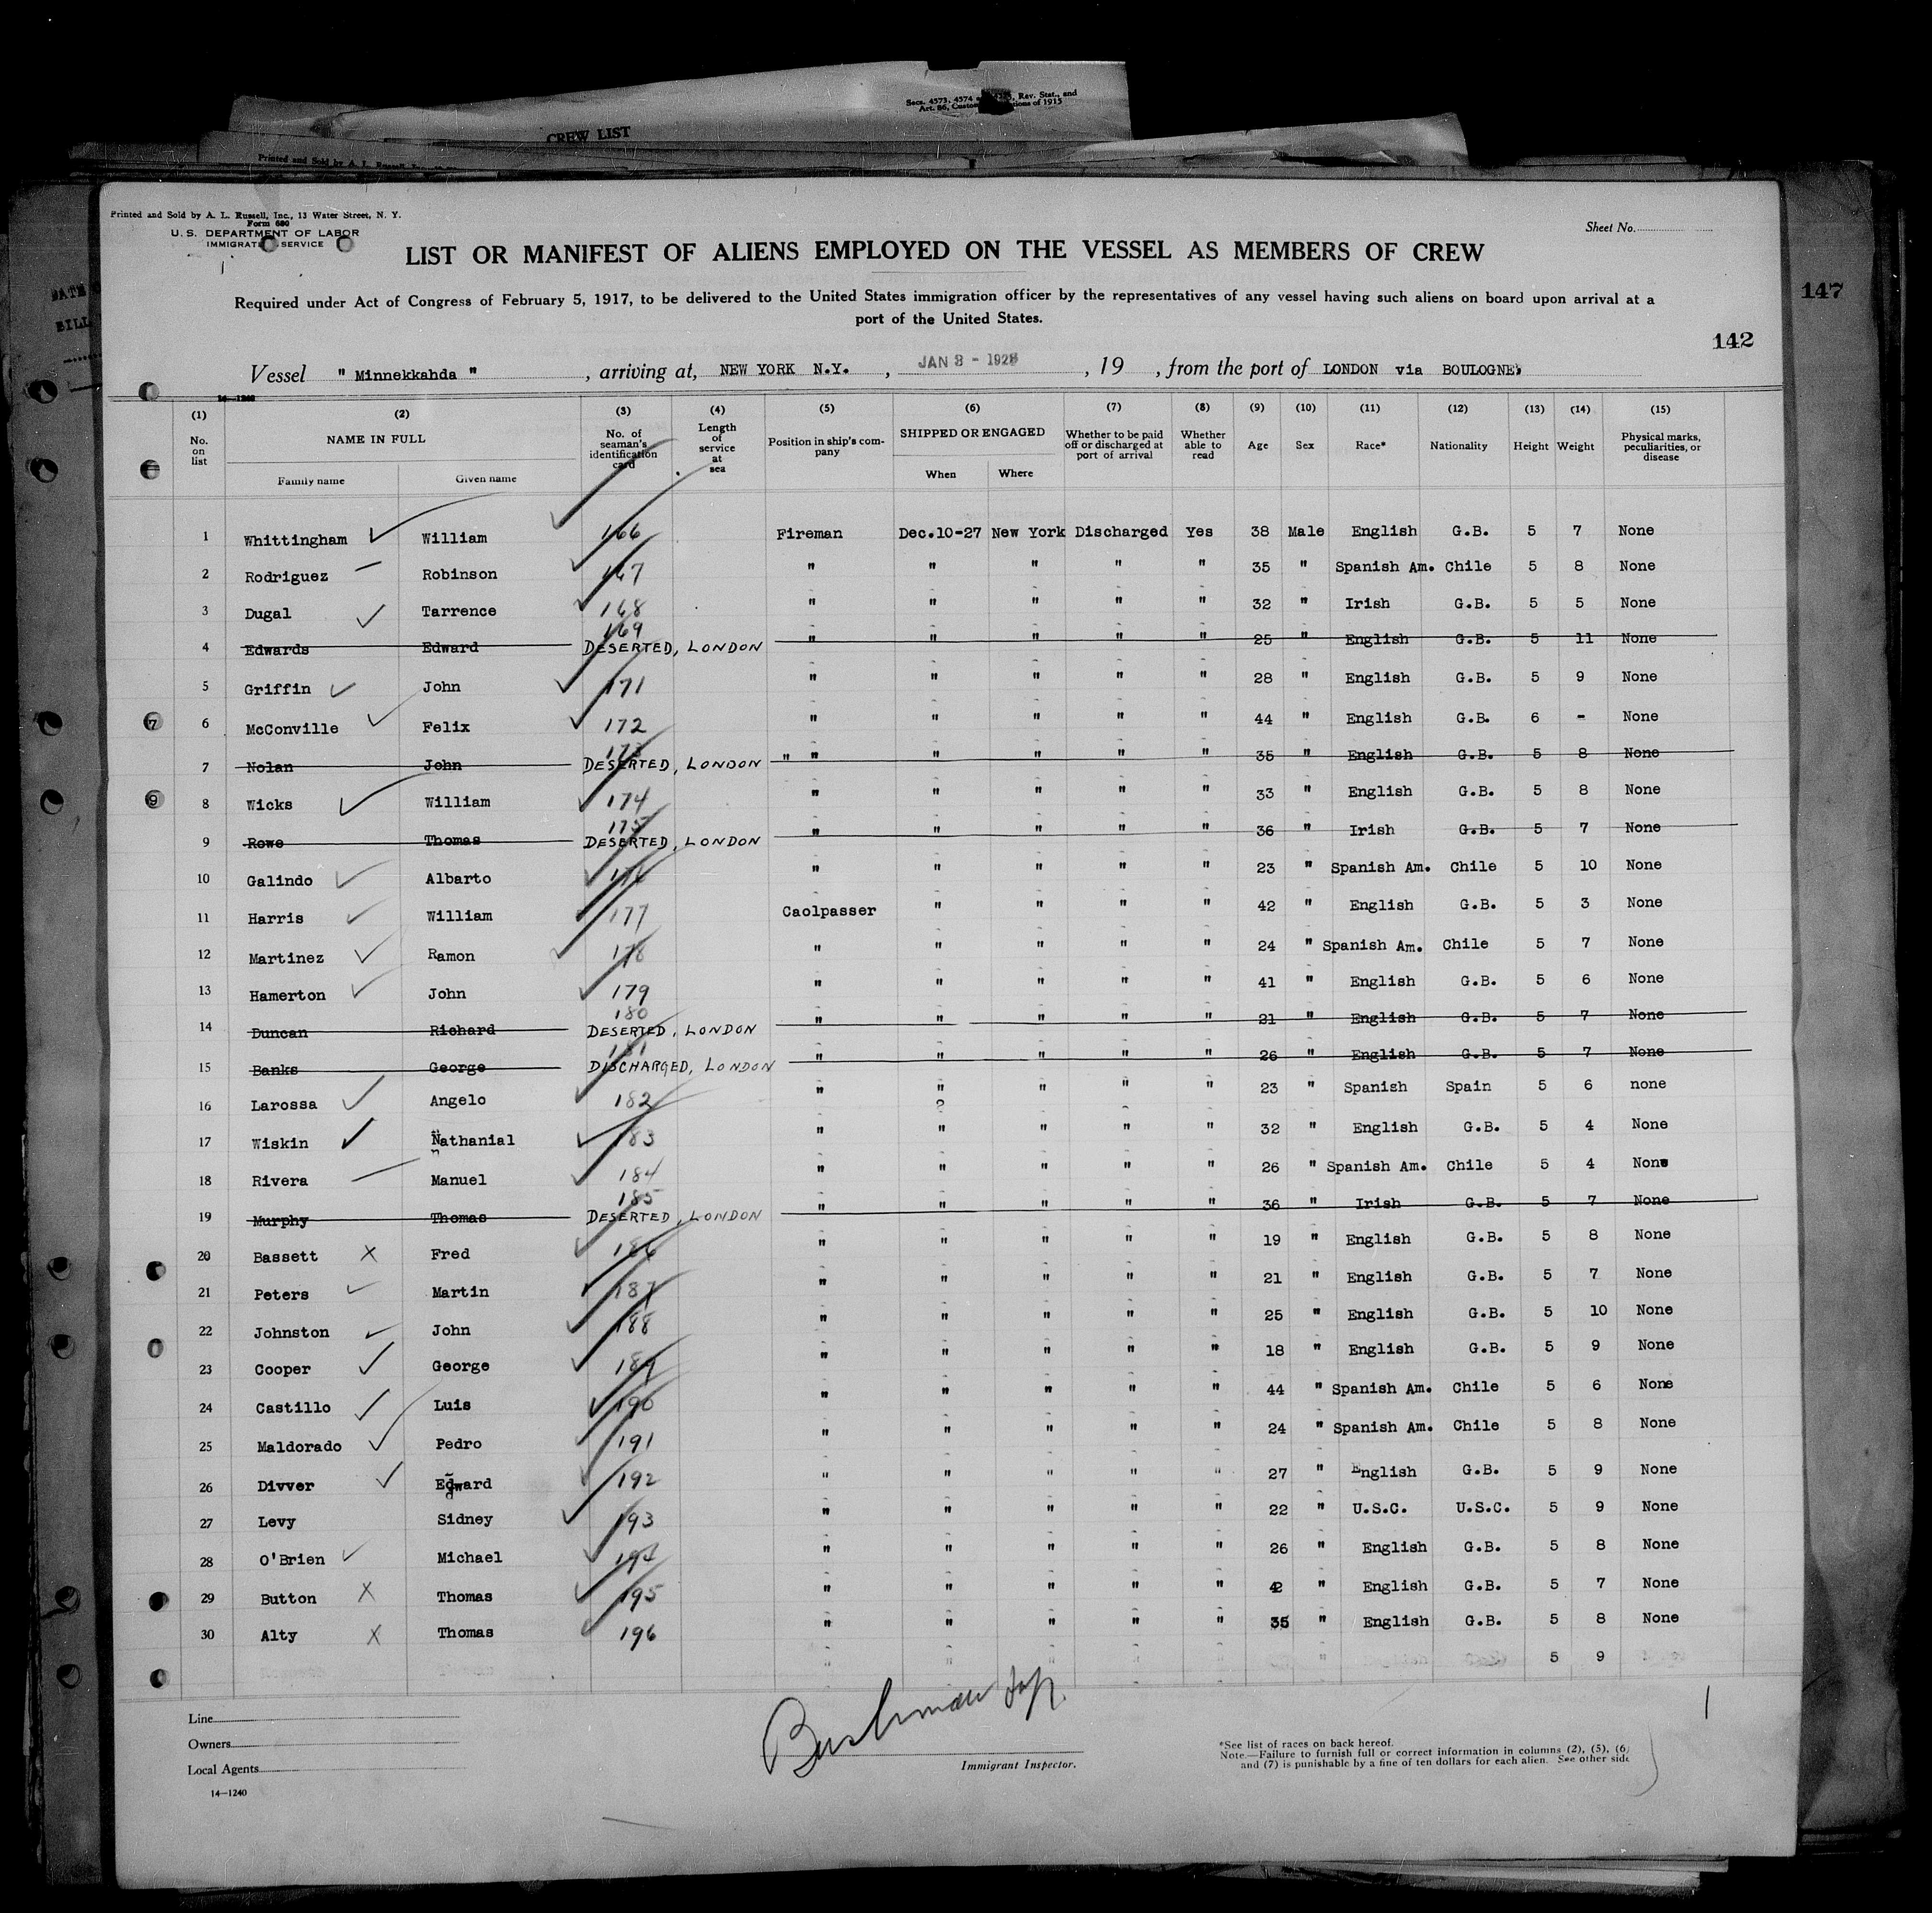 Secs. 4573, 4574 Rev. Stat., and
Art. 86, Customs of 1915
CREW LIST
Printed and Sold by A. L. Russell
Printed and Sold by A. L. Russell, Inc., 13 Water Street, N. Y.
Form 680
U. S. DEPARTMENT OF LABOR
IMMIGRATION SERVICE
Sheet No.
LIST OR MANIFEST OF ALIENS EMPLOYED ON THE VESSEL AS MEMBERS OF CREW
147
Required under Act of Congress of February 5, 1917, to be delivered to the United States immigration officer by the representatives of any vessel having such aliens on board upon arrival at a
port of the United States.
142
Vessel " Minnekkahda " , arriving at, NEW YORK N.Y. , JAN 3 - 1928 , 19 , from the port of LONDON via BOULOGNE
14—1240
(1) (2) (3) (4) (5) (6) (7) (8) (9) (10) (11) (12) (13) (14) (15)
No. on list NAME IN FULL No. of seaman's identification card Length of service at sea Position in ship's company SHIPPED OR ENGAGED Whether to be paid off or discharged at port of arrival Whether able to read Age Sex Race* Nationality Height Weight Physical marks, peculiarities, or disease
Family name Given name When Where
1 Whittingham William 166 Fireman Dec.10-27 New York Discharged Yes 38 Male English G.B. 5 7 None
2 Rodriguez Robinson 167 " " " " " 35 " Spanish Am. Chile 5 8 None
3 Dugal Tarrence 168 " " " " " 32 " Irish G.B. 5 5 None
4 Edwards Edward 169 DESERTED, LONDON " " " " " 25 " English G.B. 5 11 None
5 Griffin John 171 " " " " " 28 " English G.B. 5 9 None
6 McConville Felix 172 " " " " " 44 " English G.B. 6 - None
7 Nolan John 173 DESERTED, LONDON " " " " " " 35 " English G.B. 5 8 None
8 Wicks William 174 " " " " " 33 " English G.B. 5 8 None
9 Rowe Thomas 175 DESERTED, LONDON " " " " " 36 " Irish G.B. 5 7 None
10 Galindo Albarto 176 " " " " " 23 " Spanish Am. Chile 5 10 None
11 Harris William 177 Caolpasser " " " " 42 " English G.B. 5 3 None
12 Martinez Ramon 178 " " " " " 24 " Spanish Am. Chile 5 7 None
13 Hamerton John 179 " " " " " 41 " English G.B. 5 6 None
14 Duncan Richard 180 DESERTED, LONDON " " " " " 21 " English G.B. 5 7 None
15 Banks George 181 DISCHARGED, LONDON " " " " " 26 " English G.B. 5 7 None
16 Larossa Angelo 182 " " " " " 23 " Spanish Spain 5 6 none
17 Wiskin Nathanial 183 " " " " " 32 " English G.B. 5 4 None
18 Rivera Manuel 184 " " " " " 26 " Spanish Am. Chile 5 4 None
19 Murphy Thomas 185 DESERTED, LONDON " " " " " 36 " Irish G.B. 5 7 None
20 Bassett X Fred 186 " " " " " 19 " English G.B. 5 8 None
21 Peters Martin 187 " " " " " 21 " English G.B. 5 7 None
22 Johnston John 188 " " " " " 25 " English G.B. 5 10 None
23 Cooper George 189 " " " " " 18 " English G.B. 5 9 None
24 Castillo Luis 190 " " " " " 44 " Spanish Am. Chile 5 6 None
25 Maldorado Pedro 191 " " " " " 24 " Spanish Am. Chile 5 8 None
26 Divver Edward 192 " " " " " 27 " English G.B. 5 9 None
27 Levy Sidney 193 " " " " " 22 " U.S.C. U.S.C. 5 9 None
28 O'Brien Michael 194 " " " " " 26 " English G.B. 5 8 None
29 Button X Thomas 195 " " " " " 42 " English G.B. 5 7 None
30 Alty X Thomas 196 " " " " " 35 " English G.B. 5 8 None
5 9
Line
Owners
Local Agents
14—1240
Immigrant Inspector.
*See list of races on back hereof.
Note.—Failure to furnish full or correct information in columns (2), (5), (6)
and (7) is punishable by a fine of ten dollars for each alien. See other side